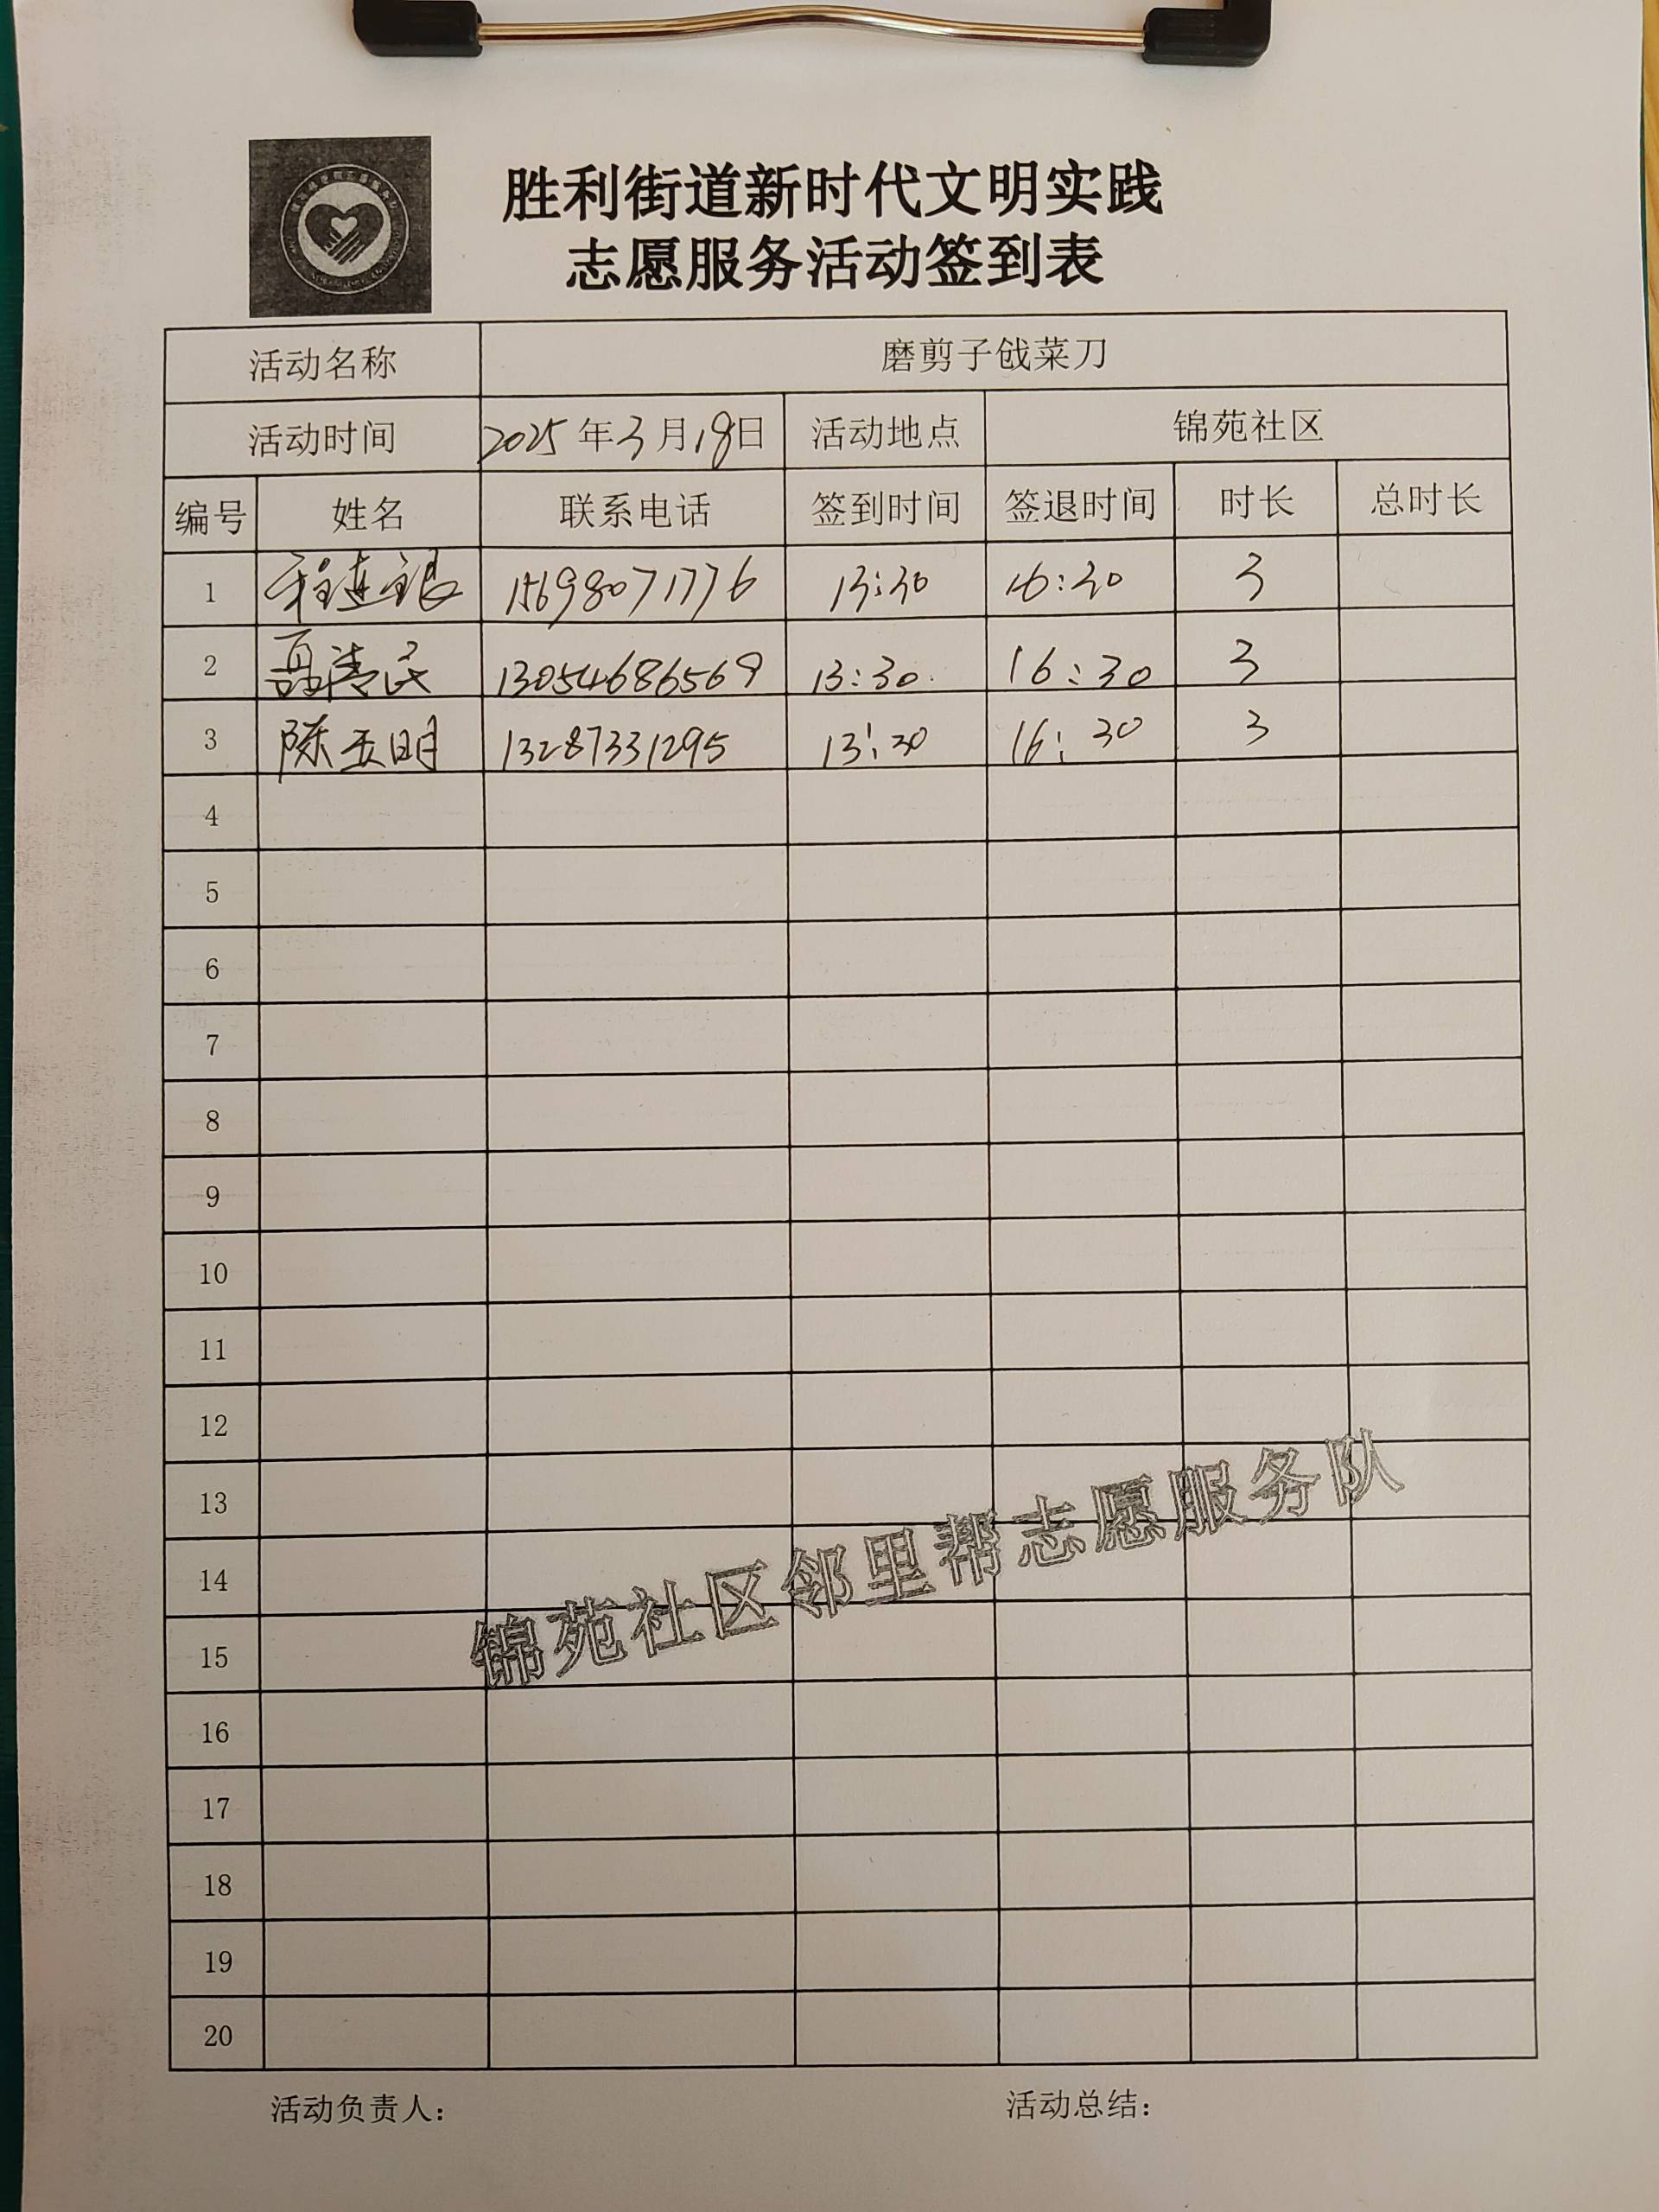 胜利街道新时代文明实践
志愿服务活动签到表
活动名称 磨剪子戗菜刀
活动时间 2025年3月18日 活动地点 锦苑社区
编号 姓名 联系电话 签到时间 签退时间 时长 总时长
1 程连银 15698071776 13:30 16:30 3
2 聂清民 13054686569 13:30 16:30 3
3 陈玉明 13287331295 13:30 16:30 3
4
5
6
7
8
9
10
11
12
13
14
15
16
17
18
19
20
锦苑社区邻里帮志愿服务队
活动负责人： 活动总结：